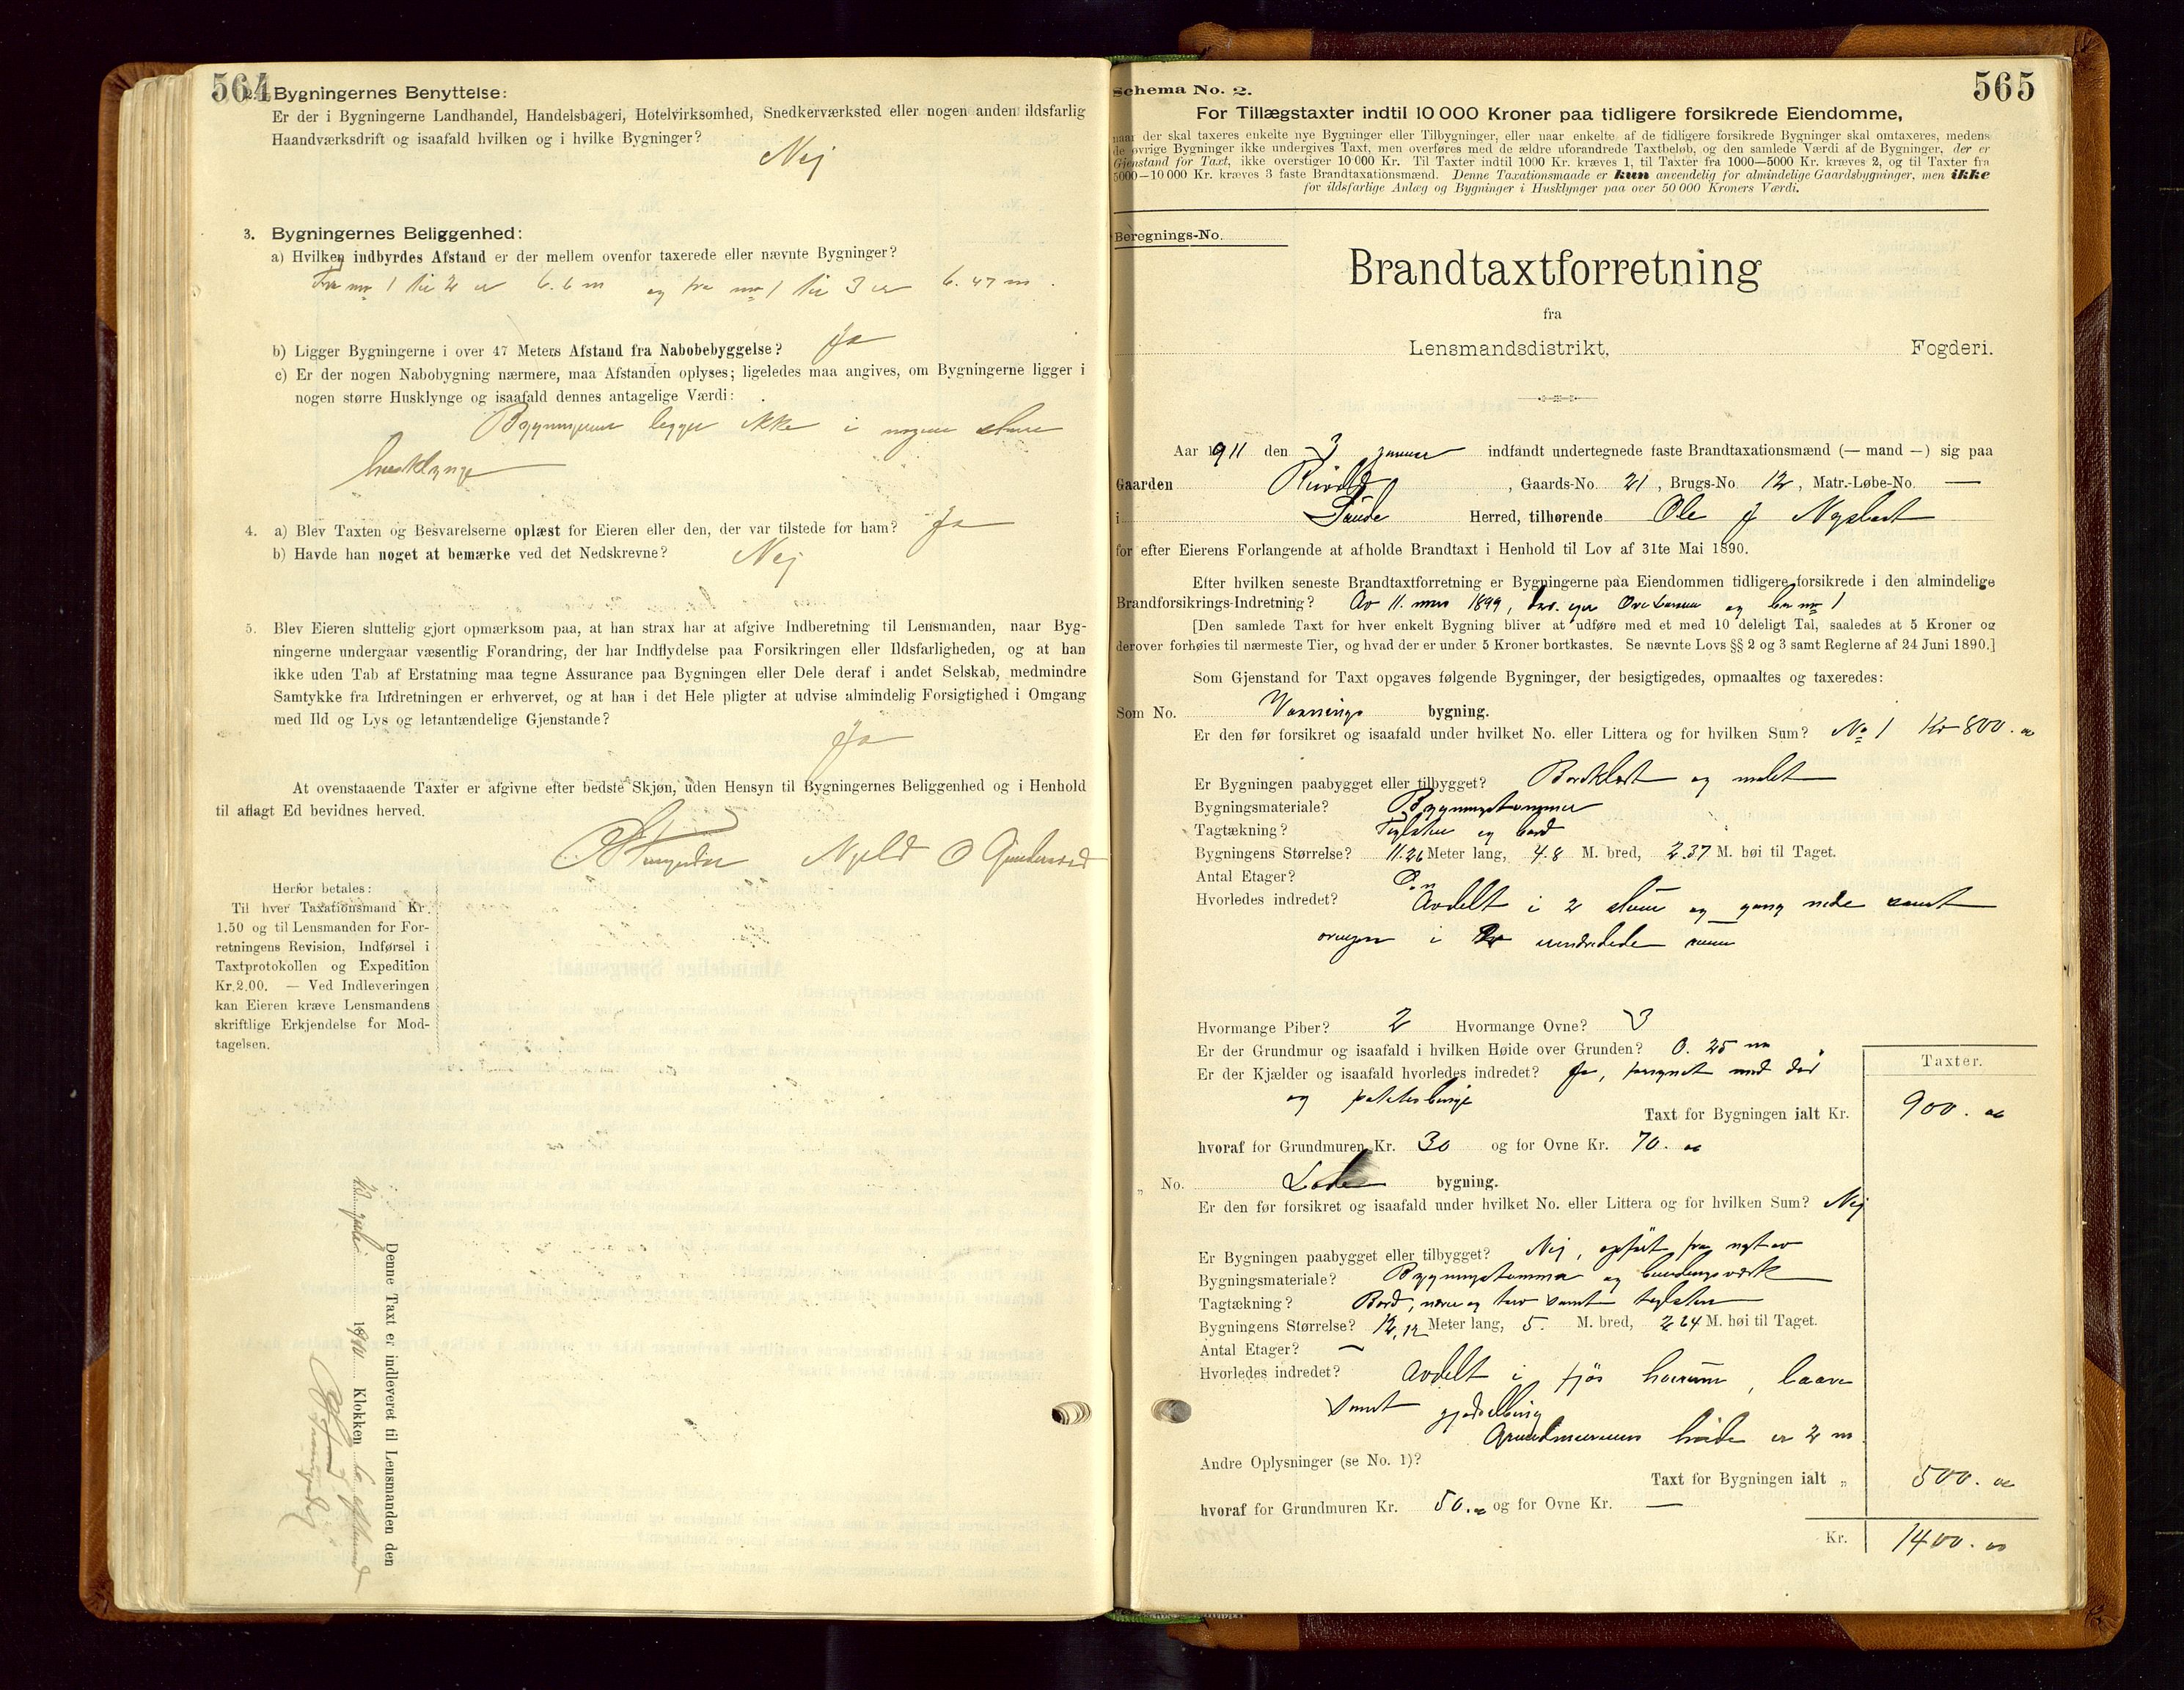 564
2. Bygningernes Benyttelse:
Er der i Bygningerne Landhandel, Handelsbageri, Hotelvirksomhed, Snedkerværksted eller nogen anden ildsfarlig
Haandværksdrift og isaafald hvilken og i hvilke Bygninger?
Nej
3. Bygningernes Beliggenhed:
a) Hvilken indbyrdes Afstand er der mellem ovenfor taxerede eller nævnte Bygninger?
Fra no 1 til 2 er 6.6 m og fra no 1 til 3 er 6.47 m.
b) Ligger Bygningerne i over 47 Meters Afstand fra Nabobebyggelse? Ja
c) Er der nogen Nabobygning nærmere, maa Afstanden oplyses; ligeledes maa angives, om Bygningerne ligger i
nogen større Husklynge og isaafald dennes antagelige Værdi:
Bygningerne ligger ikke i nogen större
husklynge
4. a) Blev Taxten og Besvarelserne oplæst for Eieren eller den, der var tilstede for ham? Ja
b) Havde han noget at bemærke ved det Nedskrevne? Nej
5. Blev Eieren sluttelig gjort opmærksom paa, at han strax har at afgive Indberetning til Lensmanden, naar Byg-
ningerne undergaar væsentlig Forandring, der har Indflydelse paa Forsikringen eller Ildsfarligheden, og at han
ikke uden Tab af Erstatning maa tegne Assurance paa Bygningen eller Dele deraf i andet Selskab, medmindre
Samtykke fra Indretningen er erhvervet, og at han i det Hele pligter at udvise almindelig Forsigtighed i Omgang
med Ild og Lys og letantændelige Gjenstande?
Ja
At ovenstaaende Taxter er afgivne efter bedste Skjøn, uden Hensyn til Bygningernes Beliggenhed og i Henhold
til aflagt Ed bevidnes herved.
O Gundersen
Herfor betales:
Til hver Taxationsmand Kr.
1.50 og til Lensmanden for For-
retningens Revision, Indførsel i
Taxtprotokollen og Expedition
Kr. 2.00. — Ved Indleveringen
kan Eieren kræve Lensmandens
skriftlige Erkjendelse for Mod-
tagelsen.
Denne Taxt er indleveret til Lensmanden den
juli 1910 Klokken
565
Schema No. 2.
For Tillægstaxter indtil 10 000 Kroner paa tidligere forsikrede Eiendomme,
naar der skal taxeres enkelte nye Bygninger eller Tilbygninger, eller naar enkelte af de tidligere forsikrede Bygninger skal omtaxeres, medens
de øvrige Bygninger ikke undergives Taxt, men overføres med de ældre uforandrede Taxtbeløb, og den samlede Værdi af de Bygninger, der er
Gjenstand for Taxt, ikke overstiger 10 000 Kr. Til Taxter indtil 1000 Kr. kræves 1, til Taxter fra 1000—5000 Kr. kræves 2, og til Taxter fra
5000—10 000 Kr. kræves 3 faste Brandtaxationsmænd. Denne Taxationsmaade er kun anvendelig for almindelige Gaardsbygninger, men ikke
for ildsfarlige Anlæg og Bygninger i Husklynger paa over 50 000 Kroners Værdi.
Beregnings-No.
Brandtaxtforretning
fra
Lensmandsdistrikt, Fogderi.
Aar 1911 den 3 januar indfandt undertegnede faste Brandtaxationsmænd (— mand —) sig paa
Gaarden , Gaards-No. 21, Brugs-No. 12, Matr.-Løbe-No. —
i Saude Herred, tilhørende Ole J
for efter Eierens Forlangende at afholde Brandtaxt i Henhold til Lov af 31te Mai 1890.
Efter hvilken seneste Brandtaxtforretning er Bygningerne paa Eiendommen tidligere forsikrede i den almindelige
Brandforsikrings-Indretning? Av 11. mars 1899, og no 1
[Den samlede Taxt for hver enkelt Bygning bliver at udføre med et med 10 deleligt Tal, saaledes at 5 Kroner og
derover forhøies til nærmeste Tier, og hvad der er under 5 Kroner bortkastes. Se nævnte Lovs §§ 2 og 3 samt Reglerne af 24 Juni 1890.]
Som Gjenstand for Taxt opgaves følgende Bygninger, der besigtigedes, opmaaltes og taxeredes:
Som No. Vaanings bygning.
Er den før forsikret og isaafald under hvilket No. eller Littera og for hvilken Sum? No 1 Kr 800. oo
Er Bygningen paabygget eller tilbygget? Bordklædt og malet
Bygningsmateriale? Bygningstømmer
Tagtækning? Teglsten og bord
Bygningens Størrelse? 11.26 Meter lang, 4.8 M. bred, 2.37 M. høi til Taget.
Antal Etager? En
Hvorledes indredet? Avdelt i 2 stuer og gang nede samt
ovenpaa i uindredede rum
Hvormange Piber? 2 Hvormange Ovne? 3
Er der Grundmur og isaafald i hvilken Høide over Grunden? 0.25 m
Er der Kjælder og isaafald hvorledes indredet? Ja, forsynet med dör
og potetesbinge
Taxter.
Taxt for Bygningen ialt Kr. 900. oo
hvoraf for Grundmuren Kr. 30 og for Ovne Kr. 70. oo
„ No. Lade bygning.
Er den før forsikret og isaafald under hvilket No. eller Littera og for hvilken Sum? Nej
Er Bygningen paabygget eller tilbygget? Nej, opført fra nyt av
Bygningsmateriale? Bygningstømmer og bindingsværk
Tagtækning? Bord, næver og torv samt teglsten
Bygningens Størrelse? 12,12 Meter lang, 5. M. bred, 2.64 M. høi til Taget.
Antal Etager? —
Hvorledes indredet? Avdelt i fjös, hörum, laave
samt gjødselbing
Grundmurens höide er 2 m.
Andre Oplysninger (se No. 1)?
Taxt for Bygningen ialt „ 500. oo
hvoraf for Grundmuren Kr. 50. oo og for Ovne Kr. —
Kr. 1400. oo